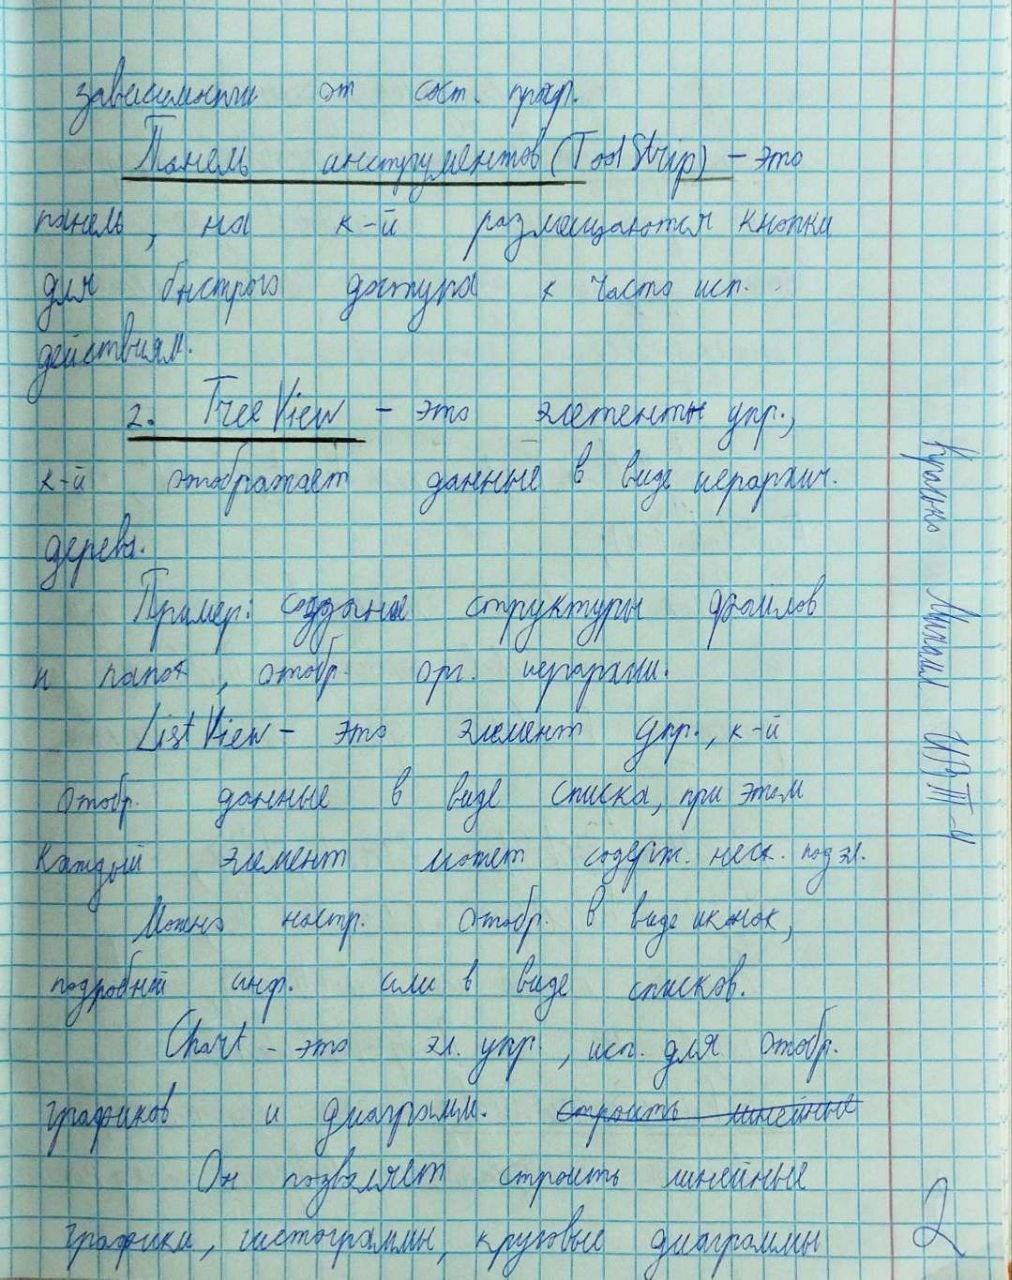 зависимости от сост. прогр.
Панель инструментов (ToolStrip) - это
панель, на к-й размещаются кнопки
для быстрого доступа к часто исп.
действиям.
2. TreeView - это элементы упр.,
к-й отображает данные в виде иерархич.
дерева.
Пример: создание структуры файлов
и папок, отобр. орг. иерархии.
ListView - это элемент упр., к-й
отобр. данные в виде списка, при этом
каждый элемент может содерж. неск. подэл.
Можно настр. отобр. в виде иконок,
подробной инф. или в виде списков.
Chart - это эл. упр., исп. для отобр.
графиков и диаграмм. строить линейные
Он позволяет строить линейные
графики, гистограммы, круговые диаграммы
Михаил
2